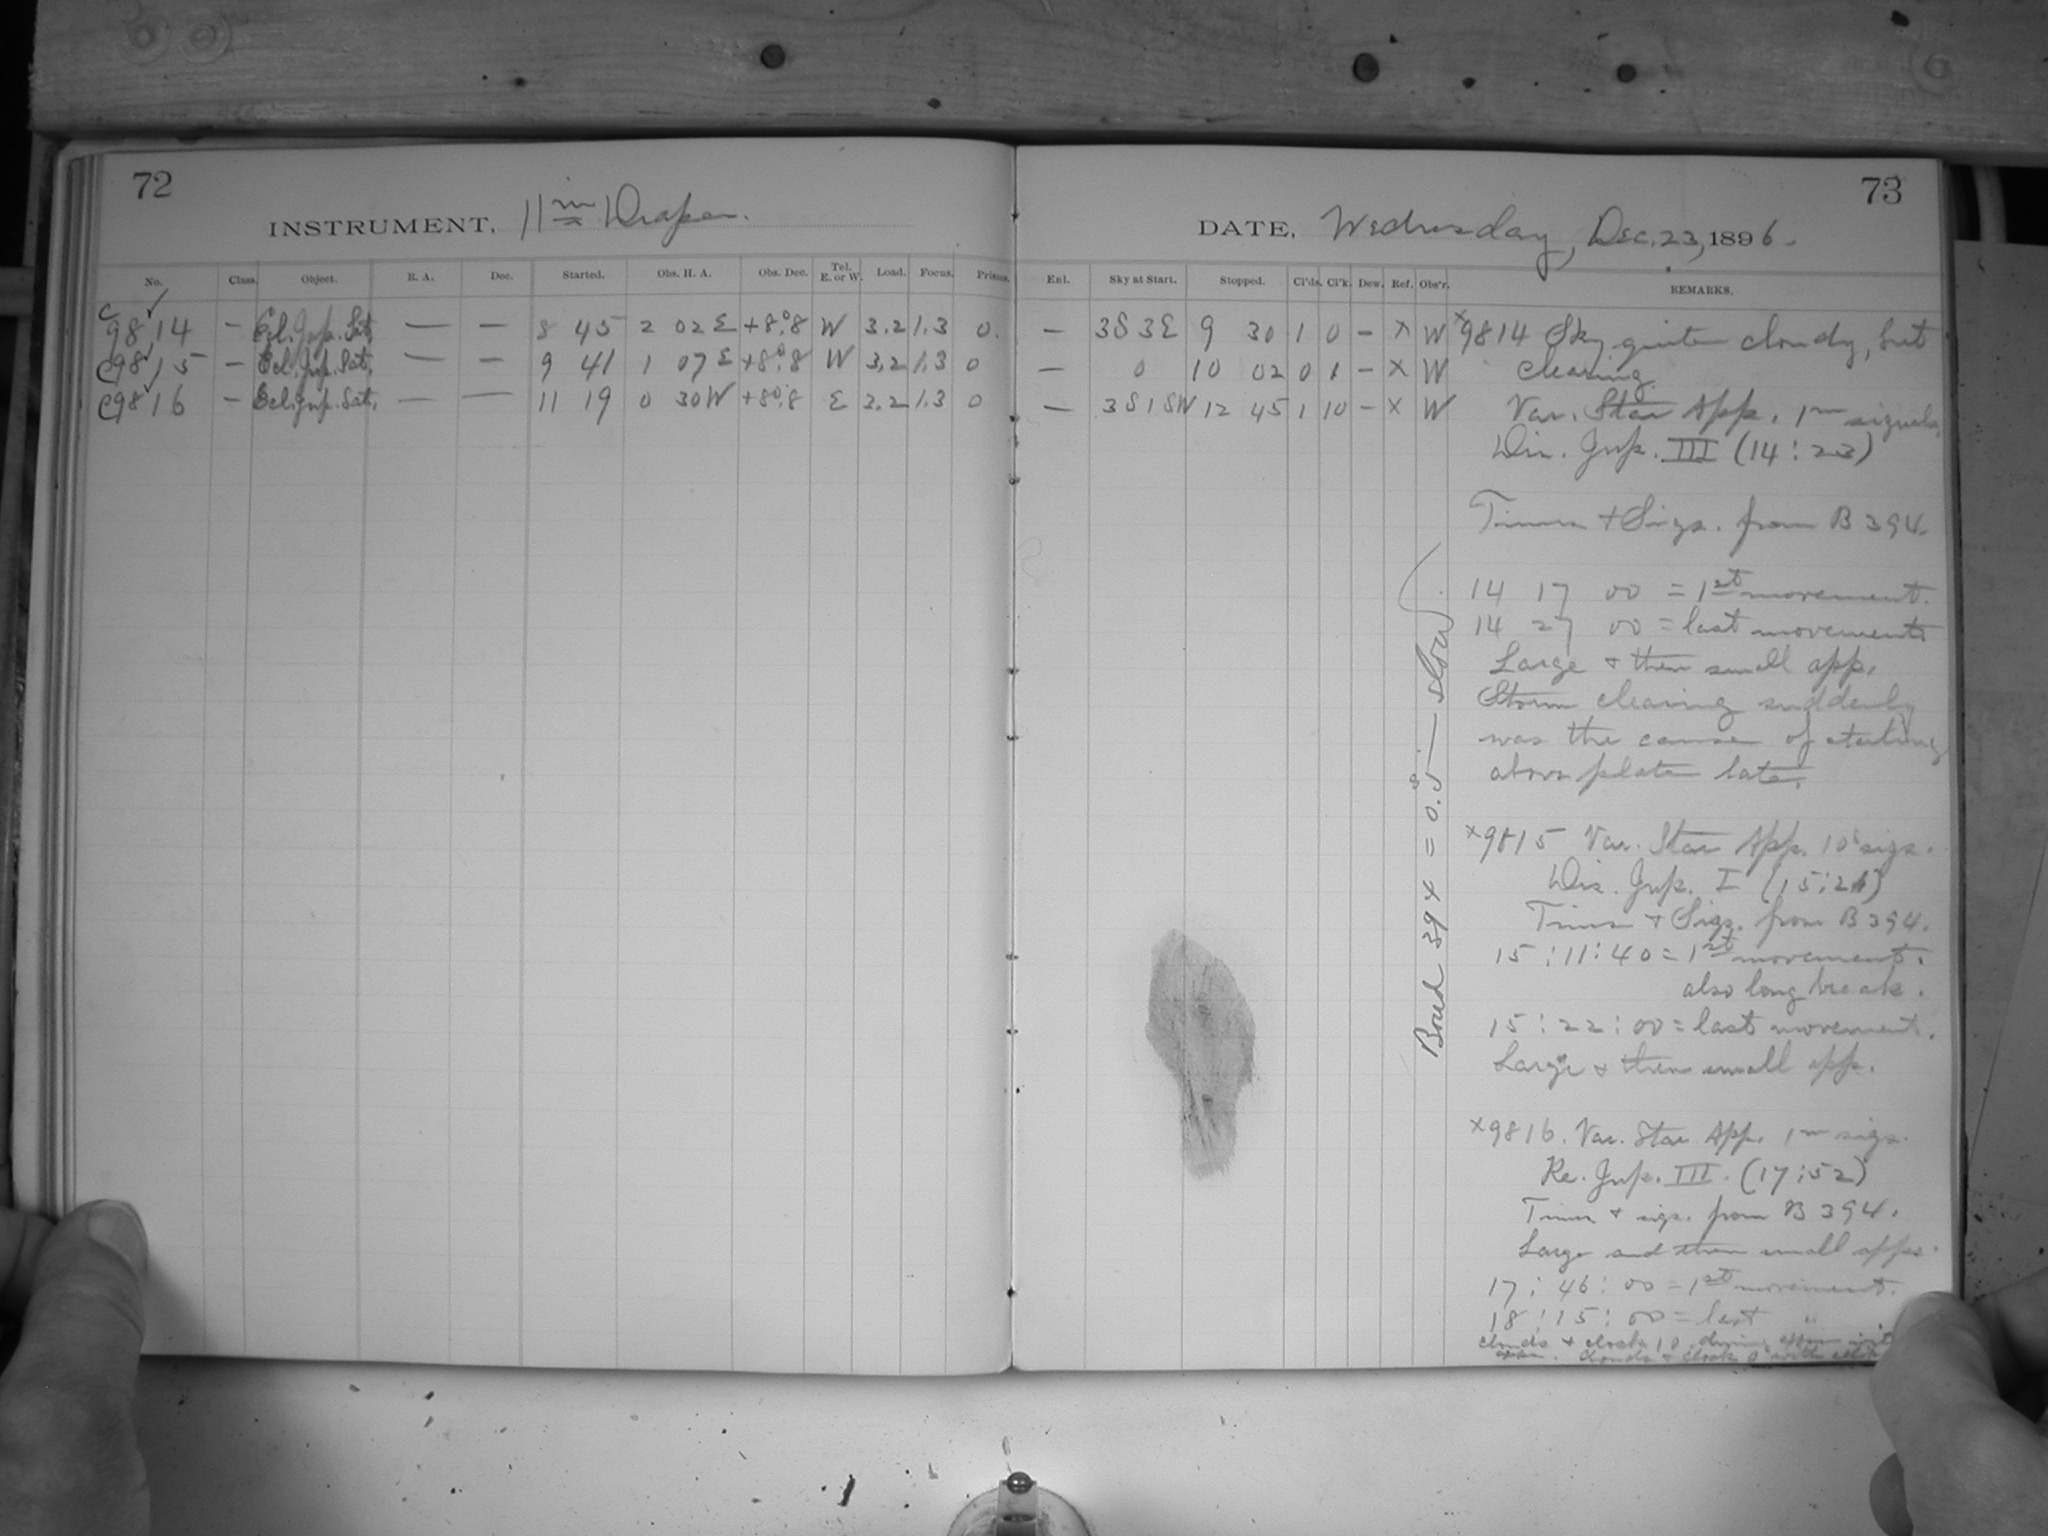 72
INSTRUMENT, 11 in Draper.
No. Class. Object. R. A. Dec. Started. Obs. H. A. Obs. Dec. Tel. E. or W. Load. Focus. Prisms.
C 9814 — Ecl. Jup. Sat. — — 8 45 2 02 E +8°.8 W 3.2 1.3 0.
C 9815 — Ecl. Jup. Sat. — — 9 41 1 07 E +8°.8 W 3.2 1.3 0
C 9816 — Ecl. Jup. Sat. — — 11 19 0 30 W +8°.8 E 3.2 1.3 0
73
DATE, Wednesday, Dec. 23, 1896.
Enl. Sky at Start. Stopped. Cl'ds. Cl'k. Dew. Ref. Obs'r. REMARKS.
— 3S 3E 9 30 1 0 — x W
— 0 10 02 0 1 — x W
— 3S 1SW 12 45 1 10 — x W
x9814 Sky quite cloudy, but
clearing.
Var. Star App. 1m signals.
Dis. Jup. III (14:23)
Times + Sigs. from B 394.
14 17 00 = 1st movement.
14 27 00 = last movement
Large + then small app.
Storm clearing suddenly
was the cause of starting
above plate late.
x9815 Var. Star App. 10s sigs.
Dis. Jup. I (15:21)
Times + Sigs. from B 394.
15:11:40 = 1st movement.
also long break.
15:22:00 = last movement.
Large + then small app.
x9816. Var. Star App. 1m sigs.
Re. Jup. III. (17:52)
Times + sigs. from B 394.
Large and then small apps.
17:46:00 = 1st movement.
18:15:00 = last "
clouds + clock 10 during
clouds + clock 0 with
Bond 394 = 0.s5 — slow.